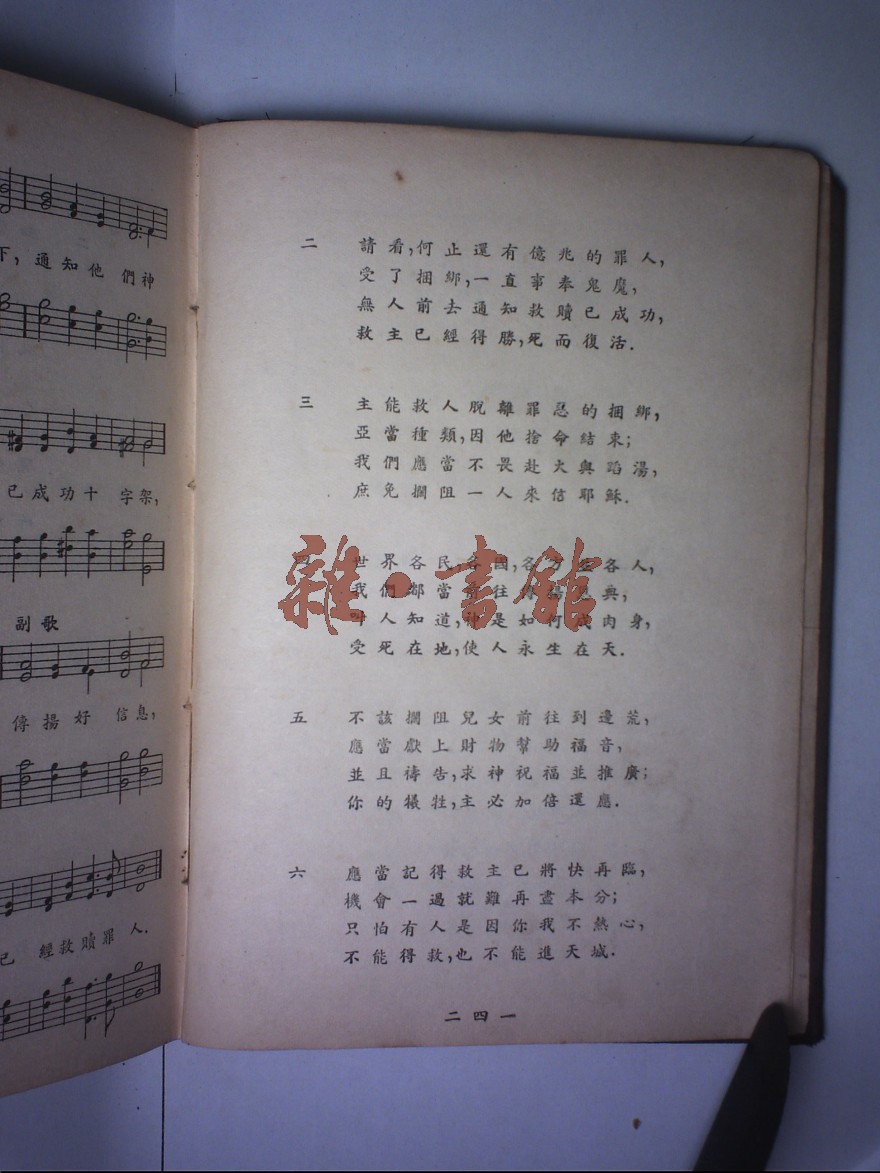 下，通知他們神
已成功十字架，
副歌
傳揚好信息，
已經救贖罪人．
二 請看，何止還有億兆的罪人，
受了捆綁，一直事奉鬼魔，
無人前去通知救贖已成功，
救主已經得勝，死而復活．
三 主能救人脫離罪惡的捆綁，
亞當種類，因他捨命結束；
我們應當不畏赴火與蹈湯，
庶免攔阻一人來信耶穌．
四 世界各民，各國，各方 各人，
我們都當前往傳揚恩典，
叫人知道，神是如何成肉身，
受死在地，使人永生在天．
五 不該攔阻兒女前往到邊荒，
應當獻上財物幫助福音，
並且禱告，求神祝福並推廣；
你的犧牲，主必加倍還應．
六 應當記得救主已將快再臨，
機會一過就難再盡本分；
只怕有人是因你我不熱心，
不能得救，也不能進天城．
二四一
雜·書館